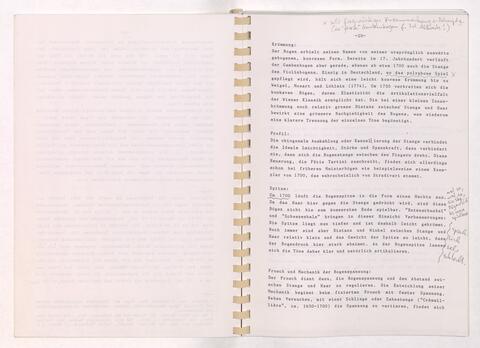 -50-
Krümmung:
Der Bogen erhielt seinen Namen von seiner ursprünglich auswärts
gebogenen, konvexen Form. Bereits im 17. Jahrhundert verläuft
der Gambenbogen aber gerade, ebenso ab etwa 1700 auch die Stange
des Violinbogens. Einzig in Deutschland, wo das polyphone Spiel
gepflegt wird, hält sich eine leicht konvexe Krümmung bis zu
Weigel, Mozart und Löhlein (1774). Um 1750 verbreiten sich die
konkaven Bögen, deren Elastizität die Artikulationsvielfalt
der Wiener Klassik ermöglicht hat. Die bei einer kleinen Innen-
krümmung noch relativ grosse Distanz zwischen Stange und Haar
bewirkt eine grössere Nachgiebigkeit des Bogens, was wiederum
eine klarere Trennung der einzelnen Töne begünstigt.
Profil:
Die oktogonale Auskehlung oder Kannelierung der Stange verbindet
die Ideale Leichtigkeit, Stärke und Spannkraft, dazu verhindert
sie, dass sich die Bogenstange zwischen den Fingern dreht. Diese
Neuerung, die Fétis Tartini zuschreibt, findet sich allerdings
schon bei früheren Meisterbögen wie beispielsweise einem Exem-
plar von 1700, das wahrscheinlich von Stradivari stammt.
Spitze:
Um 1700 läuft die Bogenspitze in die Form eines Hechts aus.
Da das Haar hier gegen die Stange gedrückt wird, sind diese
Bögen nicht bis zum äussersten Ende spielbar. "Entenschnabel"
und "Schwanenhals" bringen in dieser Hinsicht Verbesserungen:
Die Spitze liegt nun tiefer und ist deshalb leicht gekrümmt.
Noch immer sind aber Distanz und Winkel zwischen Stange und
Haar relativ klein und das Gewicht der Spitze so leicht, dass
der Bogendruck hier stark abnimmt. In der Bogenspitze lassen
sich die Töne daher klar und natürlich artikulieren.
Frosch und Mechanik der Bogenspannung:
Der Frosch dient dazu, die Bogenspannung und den Abstand zwi-
schen Stange und Haar zu regulieren. Die Entwicklung seiner
Mechanik beginnt beim fixierten Frosch mit fester Spannung.
Neben Versuchen, mit einer Schlinge oder Zahnstange ("Crémail-
lière", ca. 1650-1700) die Spannung zu variieren, findet sich